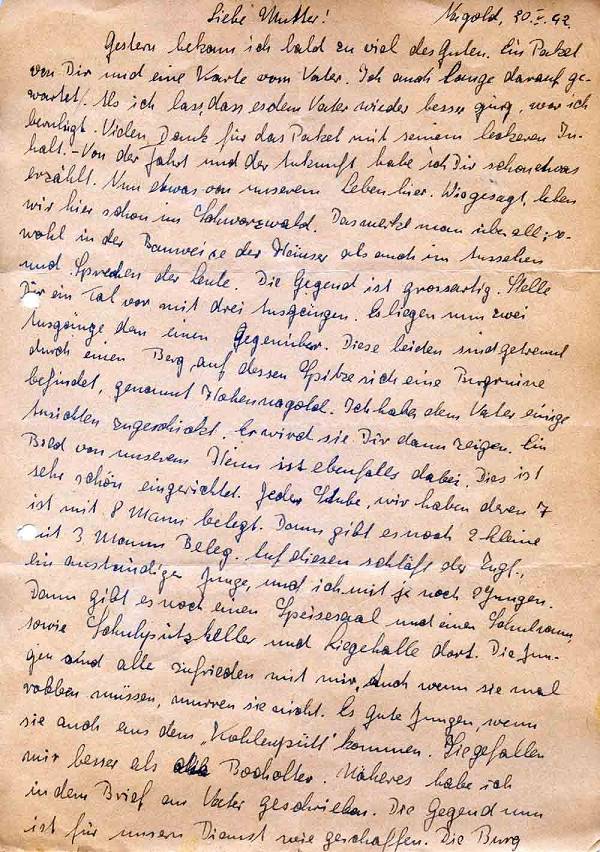 Liebe Mutter! Nagold, 20.V.42.
Gestern bekam ich bald zu viel des Guten. Ein Paket
von Dir und eine Karte vom Vater. Ich auch lange darauf ge-
wartet. Als ich lass, dass es dem Vater wieder besser ging, war ich
beruhigt. Vielen Dank für das Paket mit seinem leckeren In-
halt. - Von der Fahrt und der Ankunft habe ich Dir schon etwas
erzählt. Nun etwas von unserem Leben hier. Wie gesagt, leben
wir hier schon im Schwarzwald. Das merkt man überall; so-
wohl in der Bauweise der Häuser als auch im Aussehen
und Sprechen der Leute. Die Gegend ist grossartig. Stelle
Dir ein Tal vor mit drei Ausgängen. Es liegen nun zwei
Ausgänge dem einen gegenüber. Diese beiden sind getrennt
durch einen Berg, auf dessen Spitze sich eine Burgruine
befindet, genannt Hohennagold. Ich habe dem Vater einige
Ansichten zugeschickt. Er wird sie Dir dann zeigen. Ein
Bild von unserem Heim ist ebenfalls dabei. Dies ist
sehr schön eingerichtet. Jede Stube, wir haben deren 7
ist mit 8 Mann belegt. Dann gibt es noch 2 kleine
mit 3 Mann Beleg. Auf diesen schläft der Zugf.,
ein anständiger Junge, und ich mit je noch 2 Jungen.
Dann gibt es noch einen Speisesaal und einen Schulraum,
sowie Schuhputzkeller und Liegehalle dort. Die Jun-
gen sind alle zufrieden mit mir. Auch wenn sie mal
robben müssen, murren sie nicht. Es gute Jungen, wenn
sie auch aus dem "Kohlenpütt" kommen. Sie gefallen
mir besser als Bocholter. Näheres habe ich
in dem Brief an Vater geschrieben. Die Gegend nun
ist für unsern Dienst wie geschaffen. Die Burg